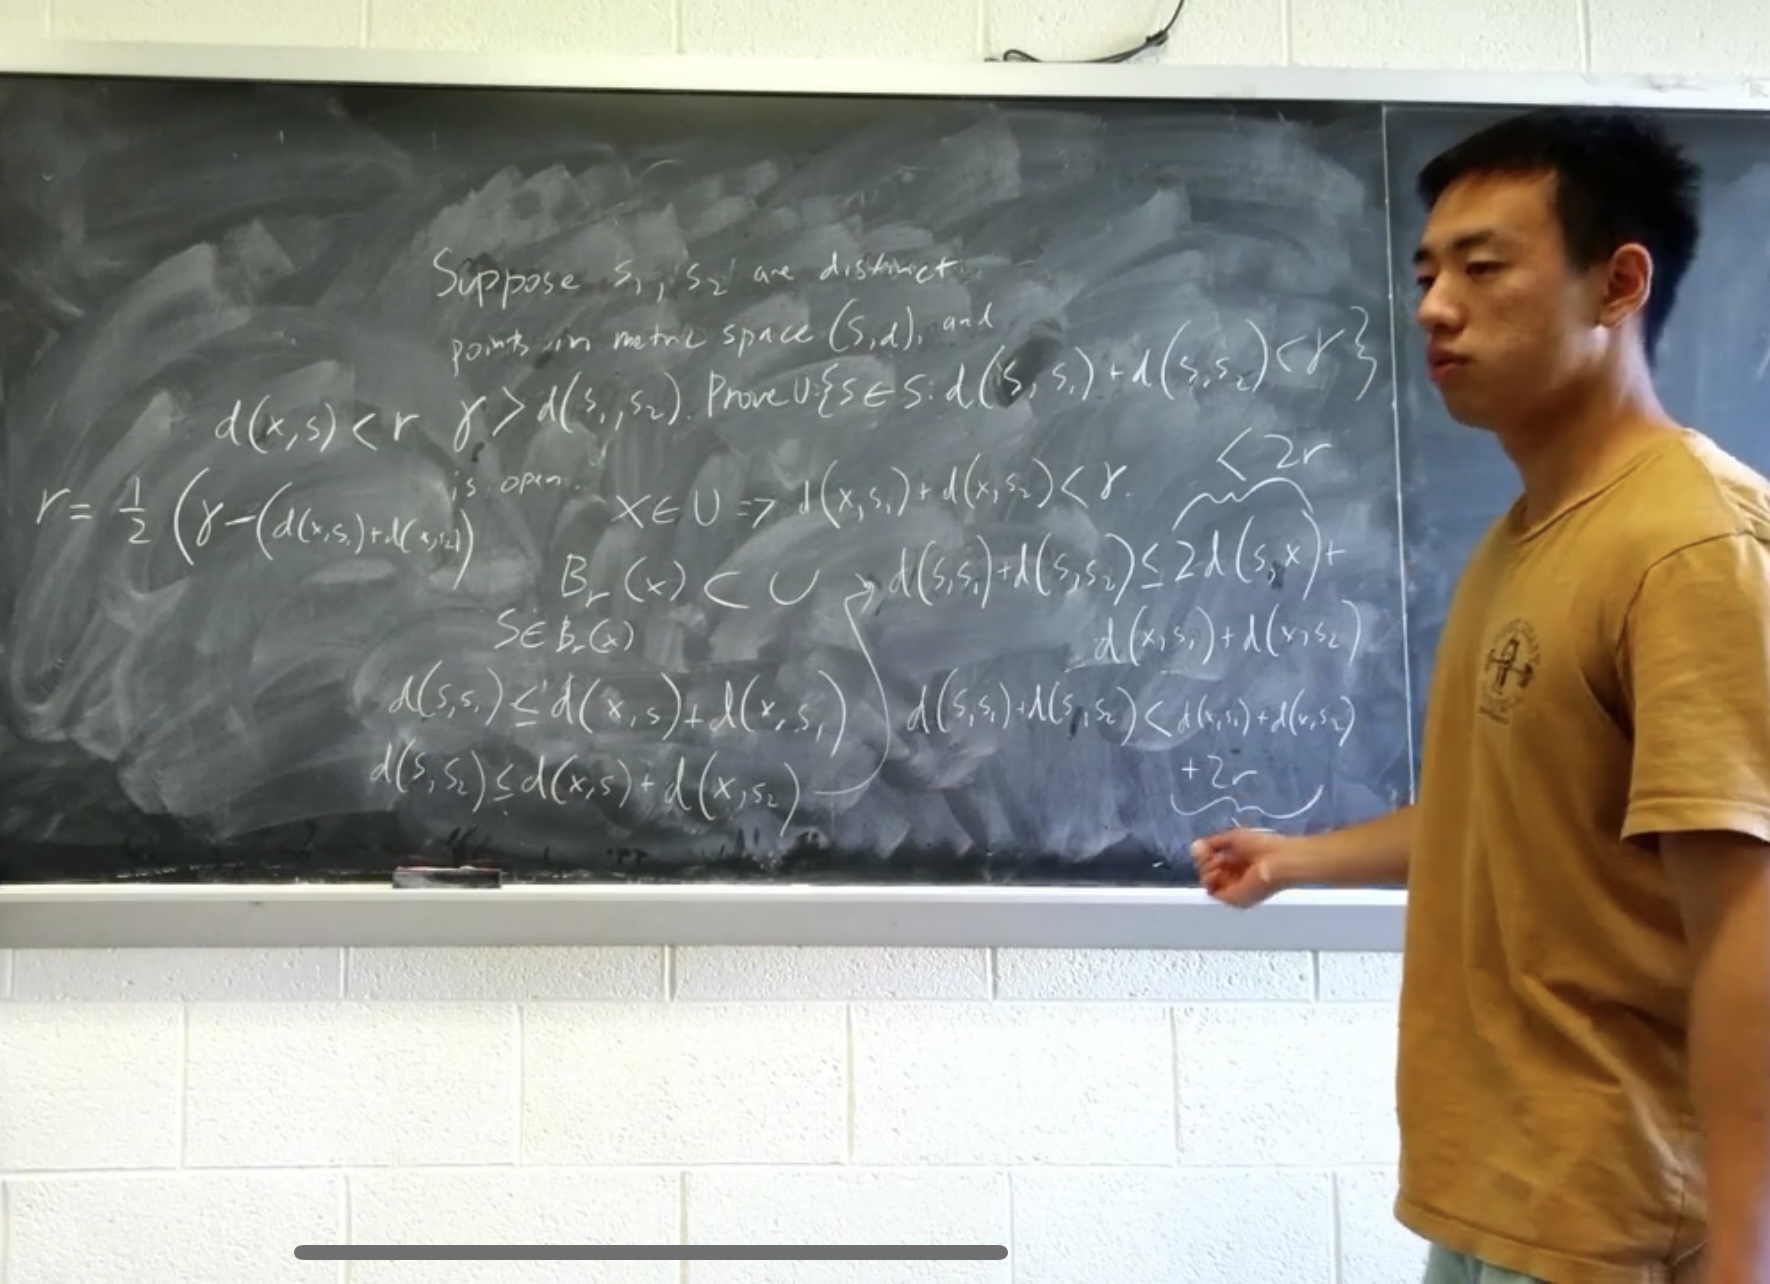 Suppose s₁, s₂ are distinct
points in metric space (S,d), and
γ > d(s₁, s₂). Prove U:{s ∈ S: d(s, s₁) + d(s, s₂) < γ}
is open.
d(x,s) < r
r = 1/2 (γ - (d(x,s₁) + d(x,s₂))
x ∈ U => d(x,s₁) + d(x,s₂) < γ.
B_r(x) ⊂ U
S ∈ B_r(x)
d(s,s₁) ≤ d(x,s) + d(x,s₁)
d(s,s₂) ≤ d(x,s) + d(x,s₂)
< 2r
d(s,s₁) + d(s,s₂) ≤ 2d(s,x) +
d(x,s₁) + d(x,s₂)
d(s,s₁) + d(s,s₂) < d(x,s₁) + d(x,s₂)
+2r